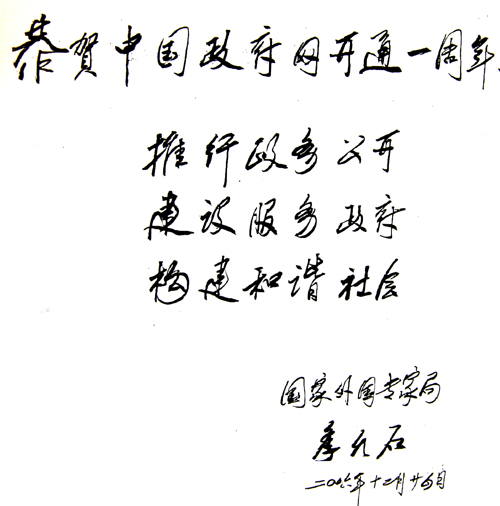 恭贺中国政府网开通一周年
推行政务公开
建设服务政府
构建和谐社会
国家外国专家局
季允石
二〇〇六年十二月廿六日